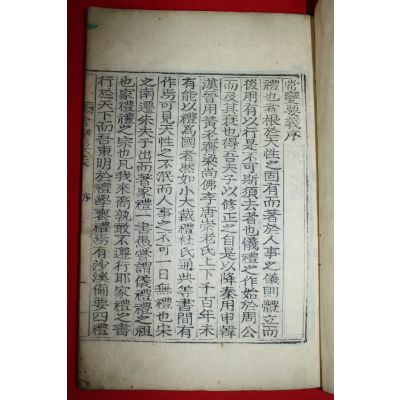 常變要義序
禮也者根於天性之固有而著於人事之儀則體立而
後用有以行是不可斯須去者也儀禮之作始於周公
而及其衰也得吾夫子以修正之自是以降秦用申韓
漢晉用黃老齊梁尚佛李唐崇老氏上下千百年未
有能以禮爲國者然如小大戴禮杜氏通典等書間有
作亦可見天性之不泯而人事之不可一日無禮也宋
之南遷朱夫子出而著家禮一書愚嘗謂儀禮禮之祖
也家禮禮之宗也凡我來裔孰敢不遵行耶家禮之書
行於天下而吾東明於禮學喪禮則有沙溪備要四禮
序